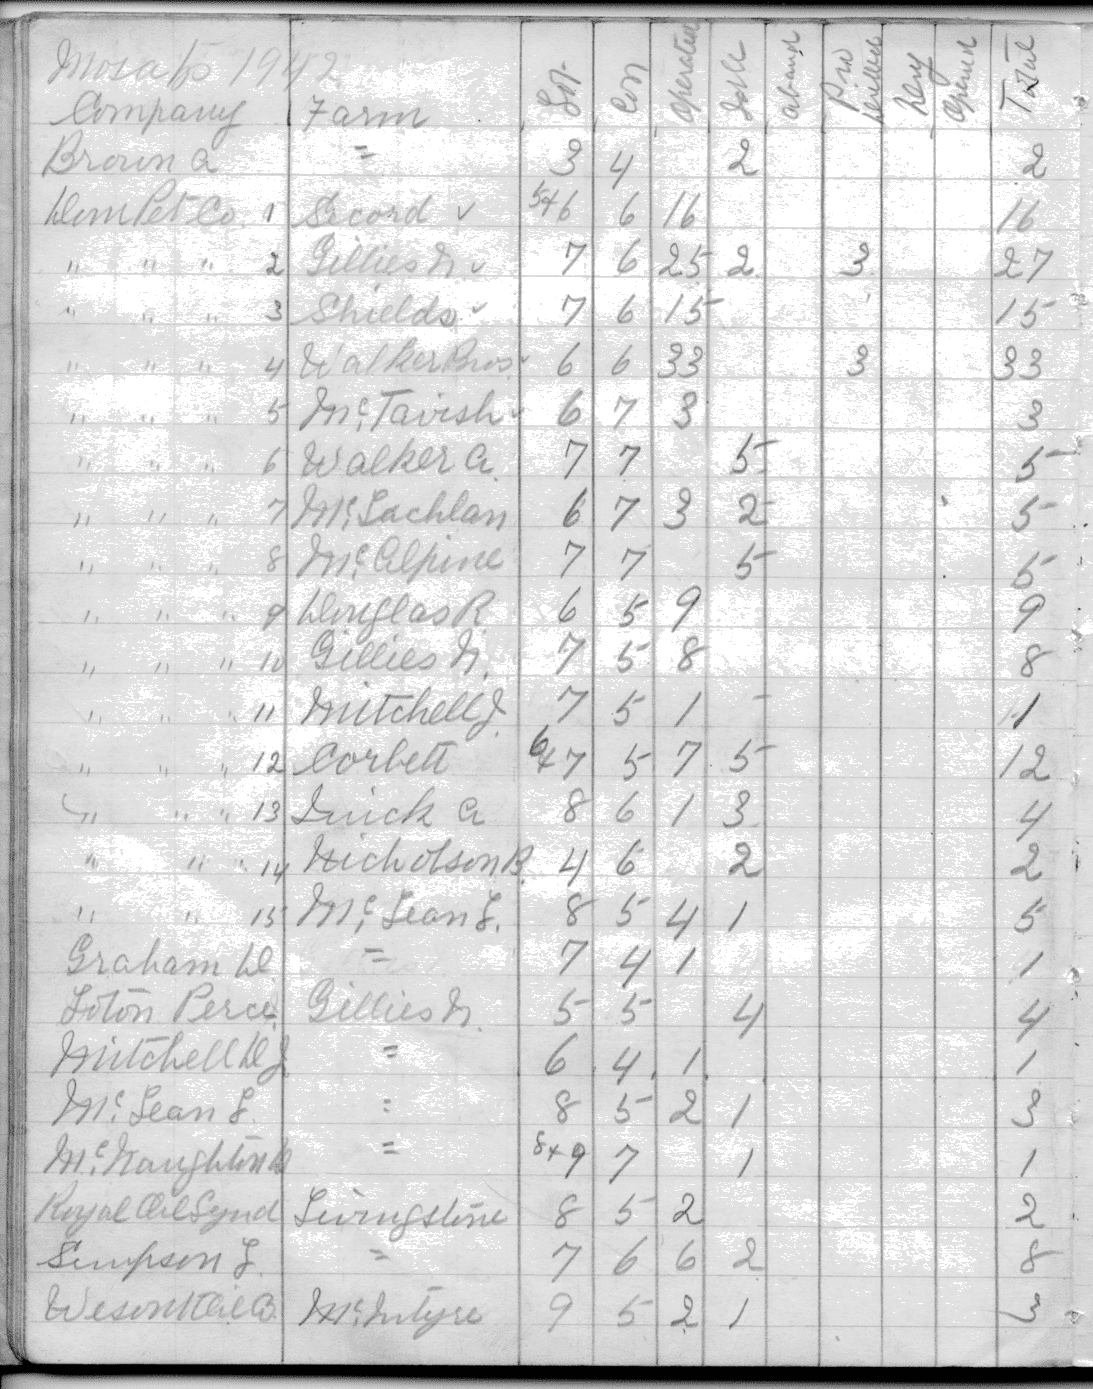 Mosa fo 1942
Company Farm Lot Con Operated Idle Aband Pre Drilled Dry Opened Total
Brown A " 3 4 2 2
Dom Pet Co. 1 Secord ✓ 5+6 6 16 16
" " " 2 Gillies N ✓ 7 6 25 2 3 27
" " " 3 Shields ✓ 7 6 15 15
" " " 4 Walker Bros. ✓ 6 6 33 3 33
" " " 5 Mc Tavish ✓ 6 7 3 3
" " " 6 Walker A. 7 7 5 5
" " " 7 Mc Lachlan 6 7 3 2 5
" " " 8 Mc Alpine 7 7 5 5
" " " 9 Douglas R. 6 5 9 9
" " " 10 Gillies N. 7 5 8 8
" " " 11 Mitchell J. 7 5 1 - 1
" " " 12 Corbett 6+7 5 7 5 12
" " " 13 Quick A 8 6 1 3 4
" " " 14 Nicholson B. 4 6 2 2
" " 15 Mc Lean L. 8 5 4 1 5
Graham D " 7 4 1 1
Loton Perci. Gillies N. 5 5 4 4
Mitchell D J " 6 4 1 1
Mc Lean L. " 8 5 2 1 3
Mc Naughton " 8+9 7 1 1
Royal Oil Synd Livingstone 8 5 2 2
Simpson L. " 7 6 6 2 8
Oil Mc Intyre 9 5 2 1 3